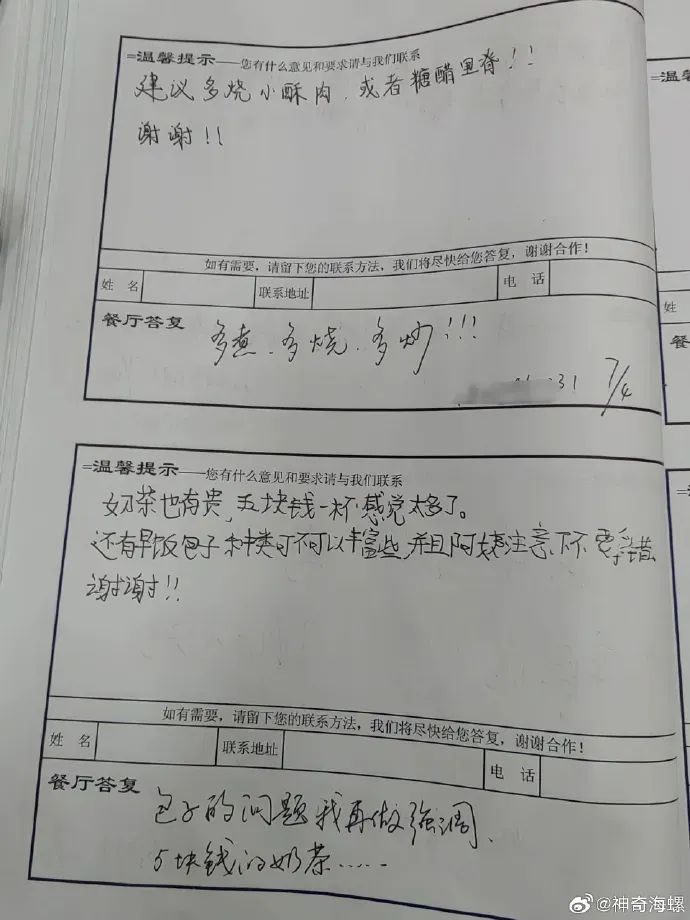 =温馨提示——您有什么意见和要求请与我们联系
建议多烧小酥肉、或者糖醋里脊!!
谢谢!!
如有需要,请留下您的联系方法,我们将尽快给您答复,谢谢合作!
姓 名 联系地址 电 话
餐厅答复
多煮、多烧、多炒!!!
31 7/4
=温馨提示——您有什么意见和要求请与我们联系
奶茶也有贵,五块钱一杯感觉太多了。
还有早饭包子种类可不可以丰富些,并且阿姨注意下不要弄错
谢谢!!
如有需要,请留下您的联系方法,我们将尽快给您答复,谢谢合作!
姓 名 联系地址 电 话
餐厅答复
包子的问题我再做强调、
5块钱的奶茶……
=温馨
姓
餐厅
=温馨提
姓
餐厅
@神奇海螺